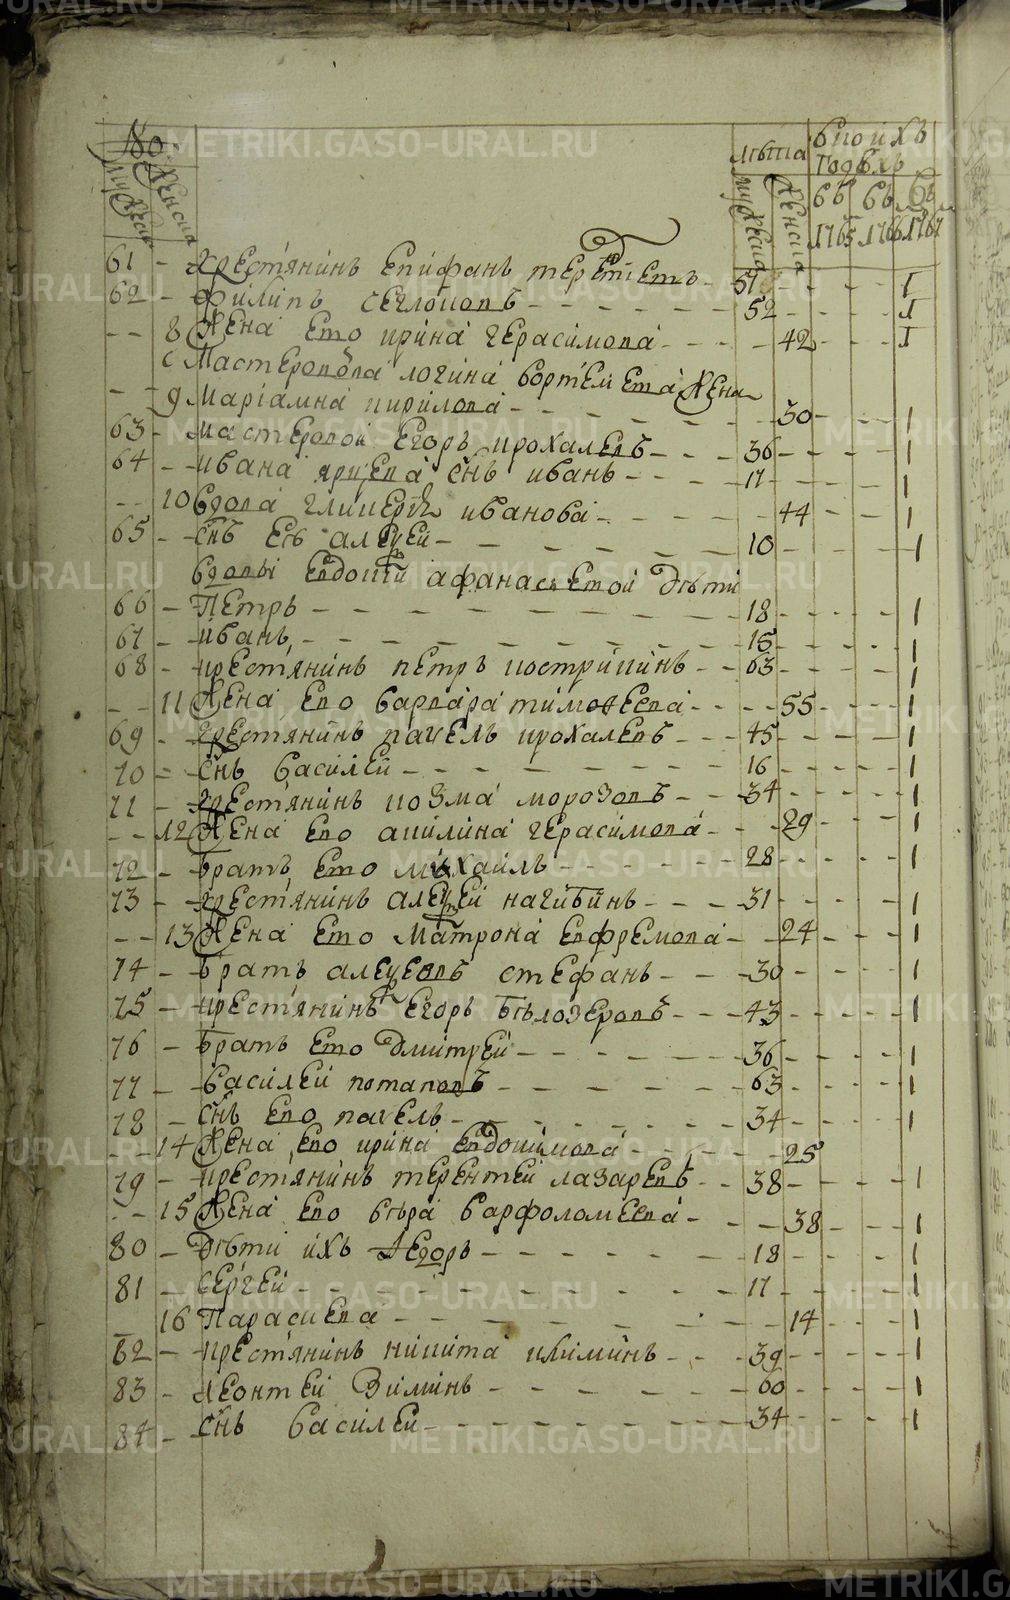 METRIKI.GASO-URAL.RU
80
мужеска женска
лѣта
мужеска женска
в коихъ годѣхъ
въ 1765 въ 1766 въ 1767
61 - крестьянинъ Епифанъ - 51 - - - - 1
62 - Филипъ - - - - - - 52 - - - - 1
- - 8 Жена Ево ирина герасимова - - - - 42 - - - 1
Мастероваго логина Жена
- - 9 Мариамна кирилова - - - - - 30 - - - 1
63 - мастеровой Егоръ - - - 36 - - - - 1
64 - - ивана снъ иванъ - - - - 17 - - - - 1
- - 10 Вдова гликерия иванова - - - - - 44 - - - 1
65 - - снъ Еѣ алеѯей - - - - - - - 10 - - - - 1
Вдовы Евдокии афанасьевой дѣти
66 - Петръ - - - - - - - - - 18 - - - - 1
67 - - иванъ - - - - - - - - - 15 - - - - 1
68 - - крестьянинъ петръ кострикинъ - - 63 - - - - 1
- - 11 Жена Ево варвара тимоѳеева - - - - 55 - - - 1
69 - крестьянинъ павелъ - - - 45 - - - - 1
70 - - снъ василей - - - - - - - - 16 - - - - 1
71 - крестьянинъ козма морозовъ - - - 34 - - - - 1
- - 12 Жена Ево акилина герасимова - - - 29 - - - 1
72 - братъ Ево михаилъ - - - - - - 28 - - - - 1
73 - - крестьянинъ алеѯей нагибинъ - - - - 31 - - - - 1
- - 13 Жена Ево Матрона Евфремова - - 24 - - - 1
74 - братъ алеѯеевъ стефанъ - - - 30 - - - - 1
75 - крестьянинъ Егоръ бѣлозеровъ - - - 43 - - - - 1
76 - братъ Ево Дмитрей - - - - - 36 - - - - 1
77 - василей потаповъ - - - - - - 63 - - - - 1
78 - снъ Ево павелъ - - - - - - - 34 - - - - 1
- - 14 Жена Ево ирина Евдокимова - - - - - 25
79 - крестьянинъ терентей лазаревъ - - 38 - - - - 1
- - 15 Жена Ево вѣра варфоломеева - - - - 38 - - - 1
80 - Дѣти ихъ Егоръ - - - - - - - 18 - - - - 1
81 - Сергей - - - - - - - - - 17 - - - - 1
- - 16 Параскева - - - - - - - - 14 - - - 1
82 - - крестьянинъ никита климинъ - - - 39 - - - - 1
83 - леонтей Зиминъ - - - - - - 60 - - - - 1
84 - - снъ василей - - - - - - - - 34 - - - 1